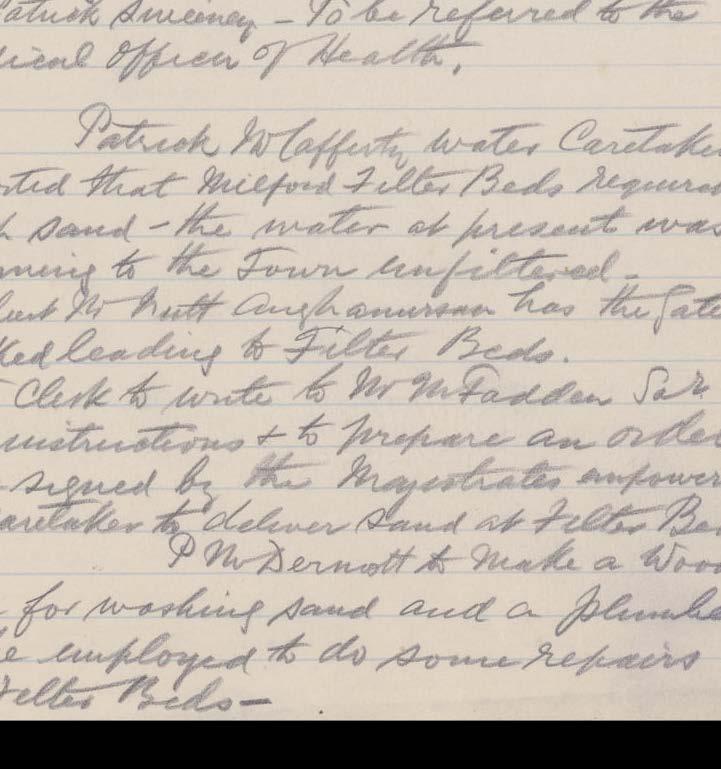 atrick Sweeney - To be referred to the
ical Officer of Health.
Patrick McCafferty water Caretake
rted that Milford Filter Beds required
h sand - the water at present was
ming to the Town unfiltered -
bert McNutt has the Gate
ked leading to Filter Beds.
Clerk to write to Mr McFadden Solr
instructions & to prepare an order
signed by the Magistrates empower
aretaker to deliver sand at Filter Be
P McDermott to make a Wood
for washing sand and a plumbe
e employed to do some repairs
Filter Beds -